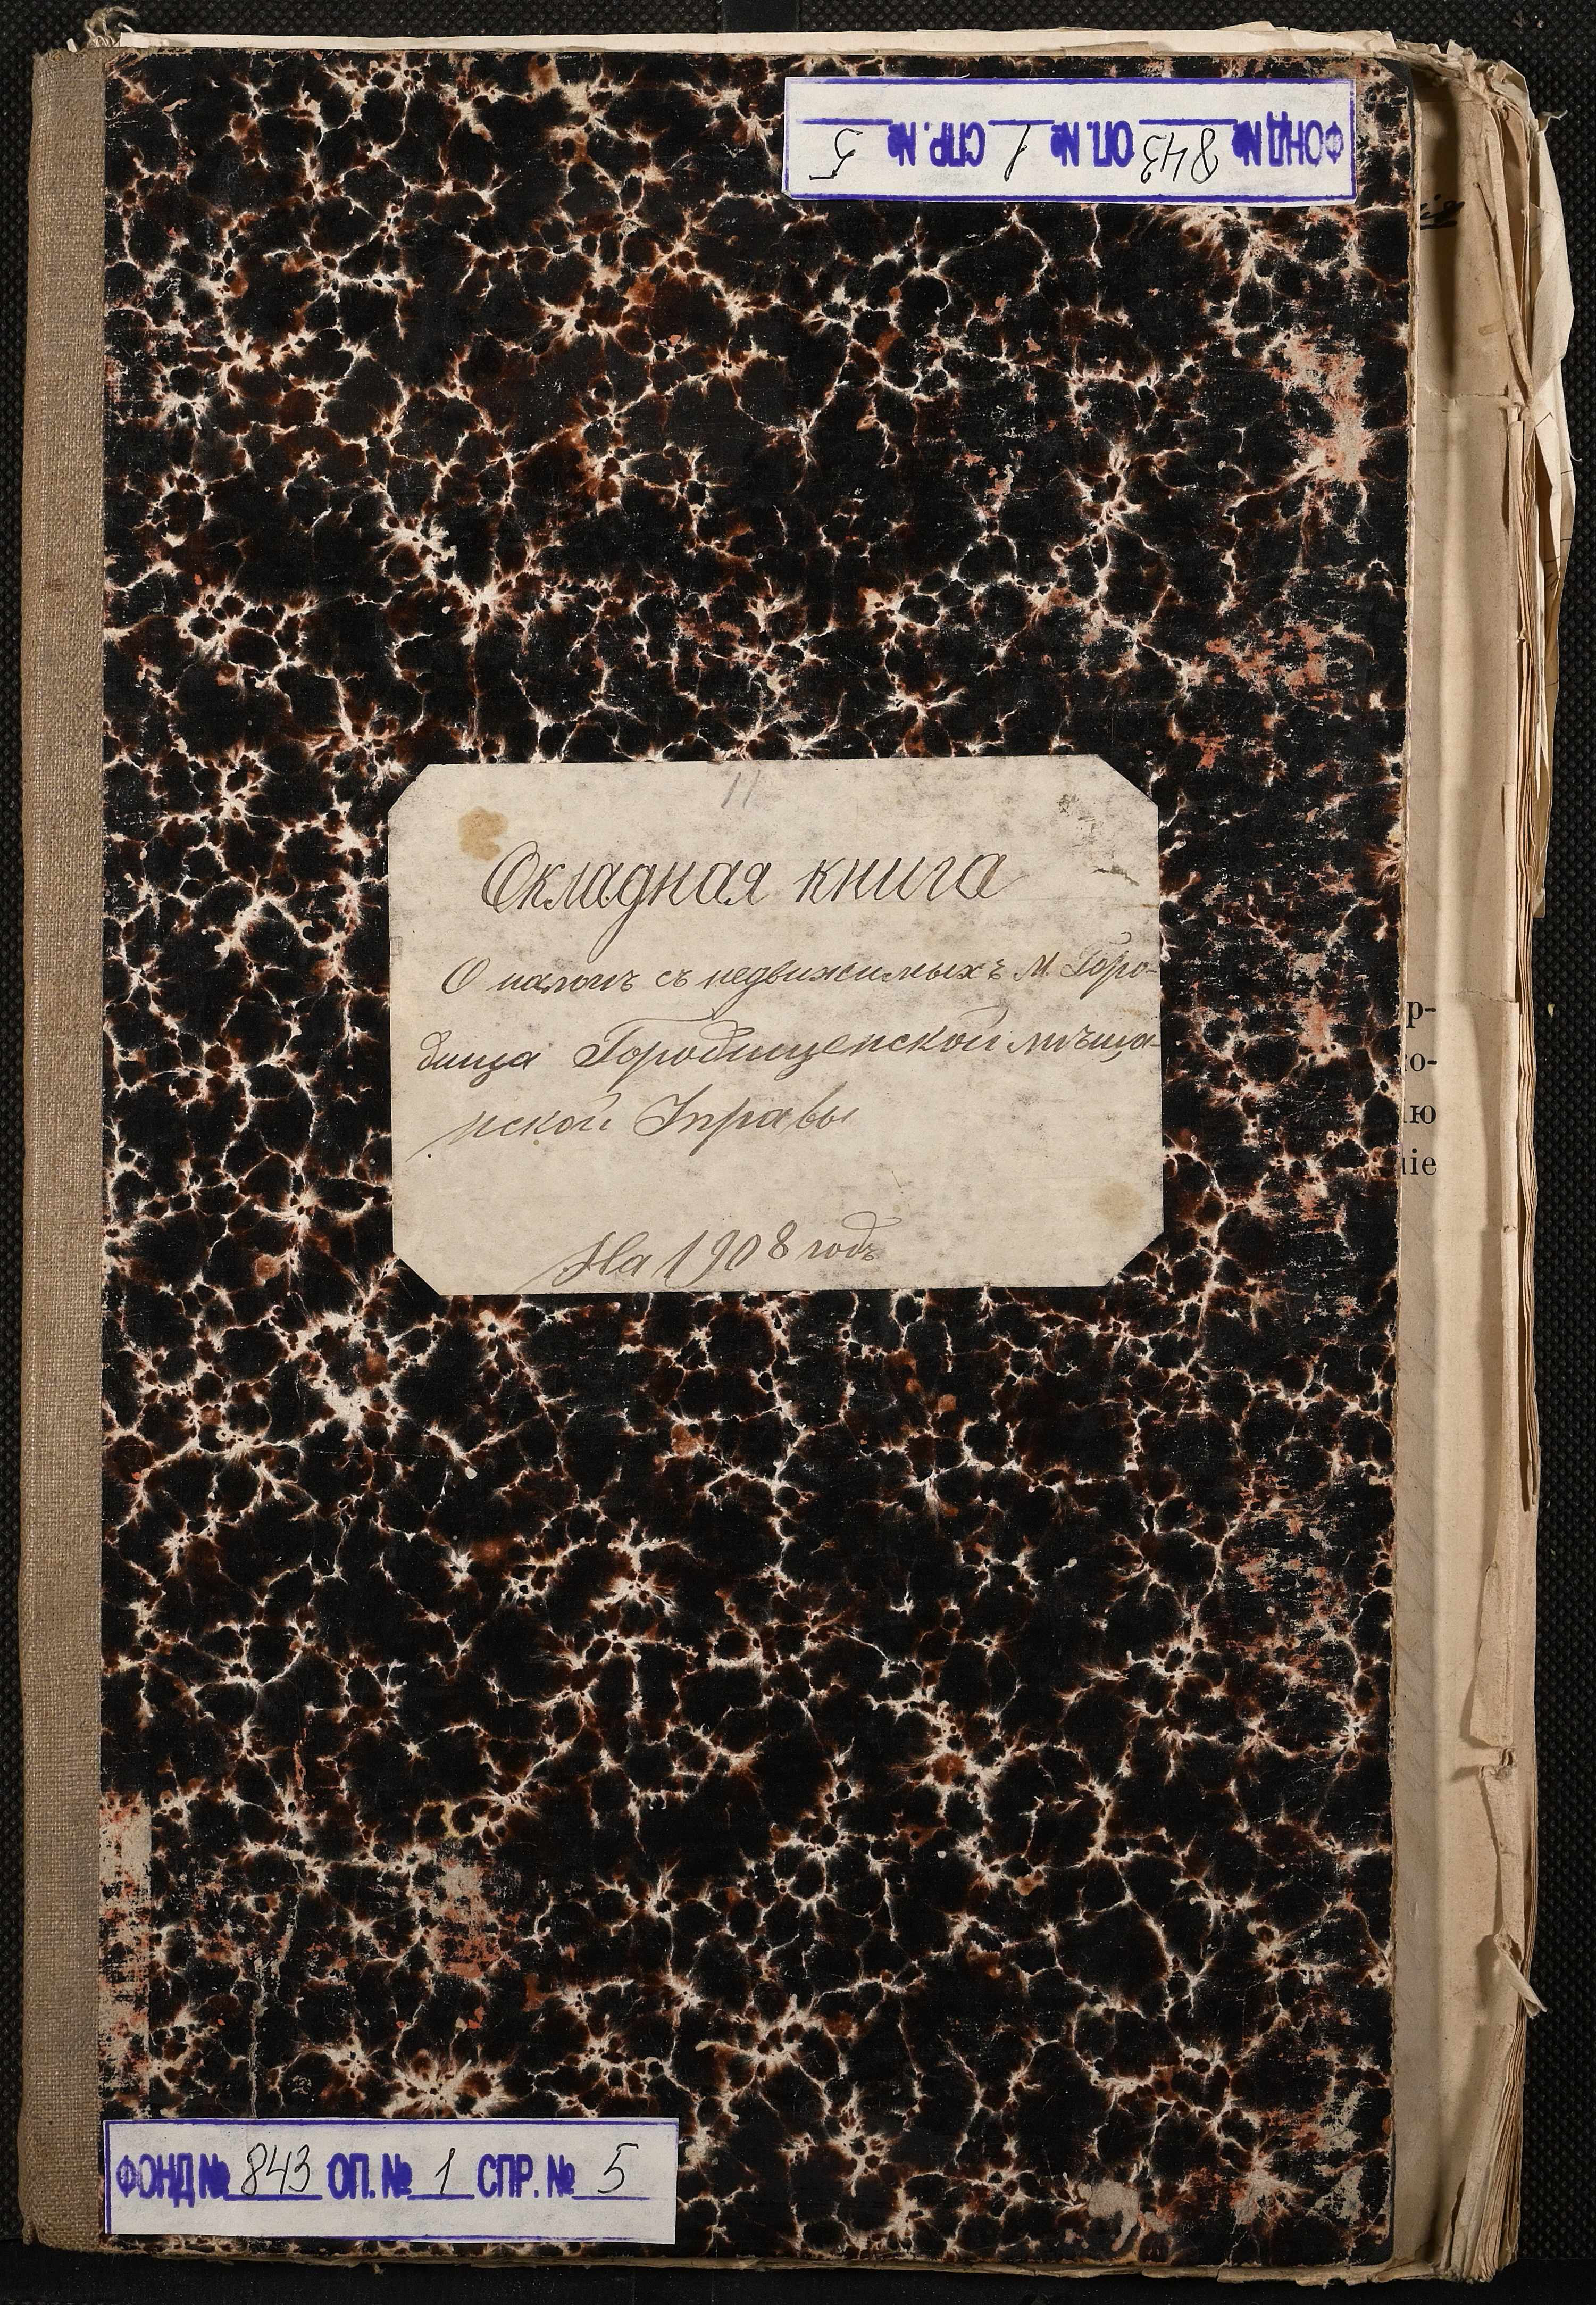 ФОНД № 843 ОП. № 1 СПР. № 5
11
Окладная книга
О налогѣ съ недвижимыхъ М. Горо-
дища Городищенской мѣща-
нской Управы
На 1908 годъ
р-
о-
ію
ніе
ФОНД № 843 ОП. № 1 СПР. № 5